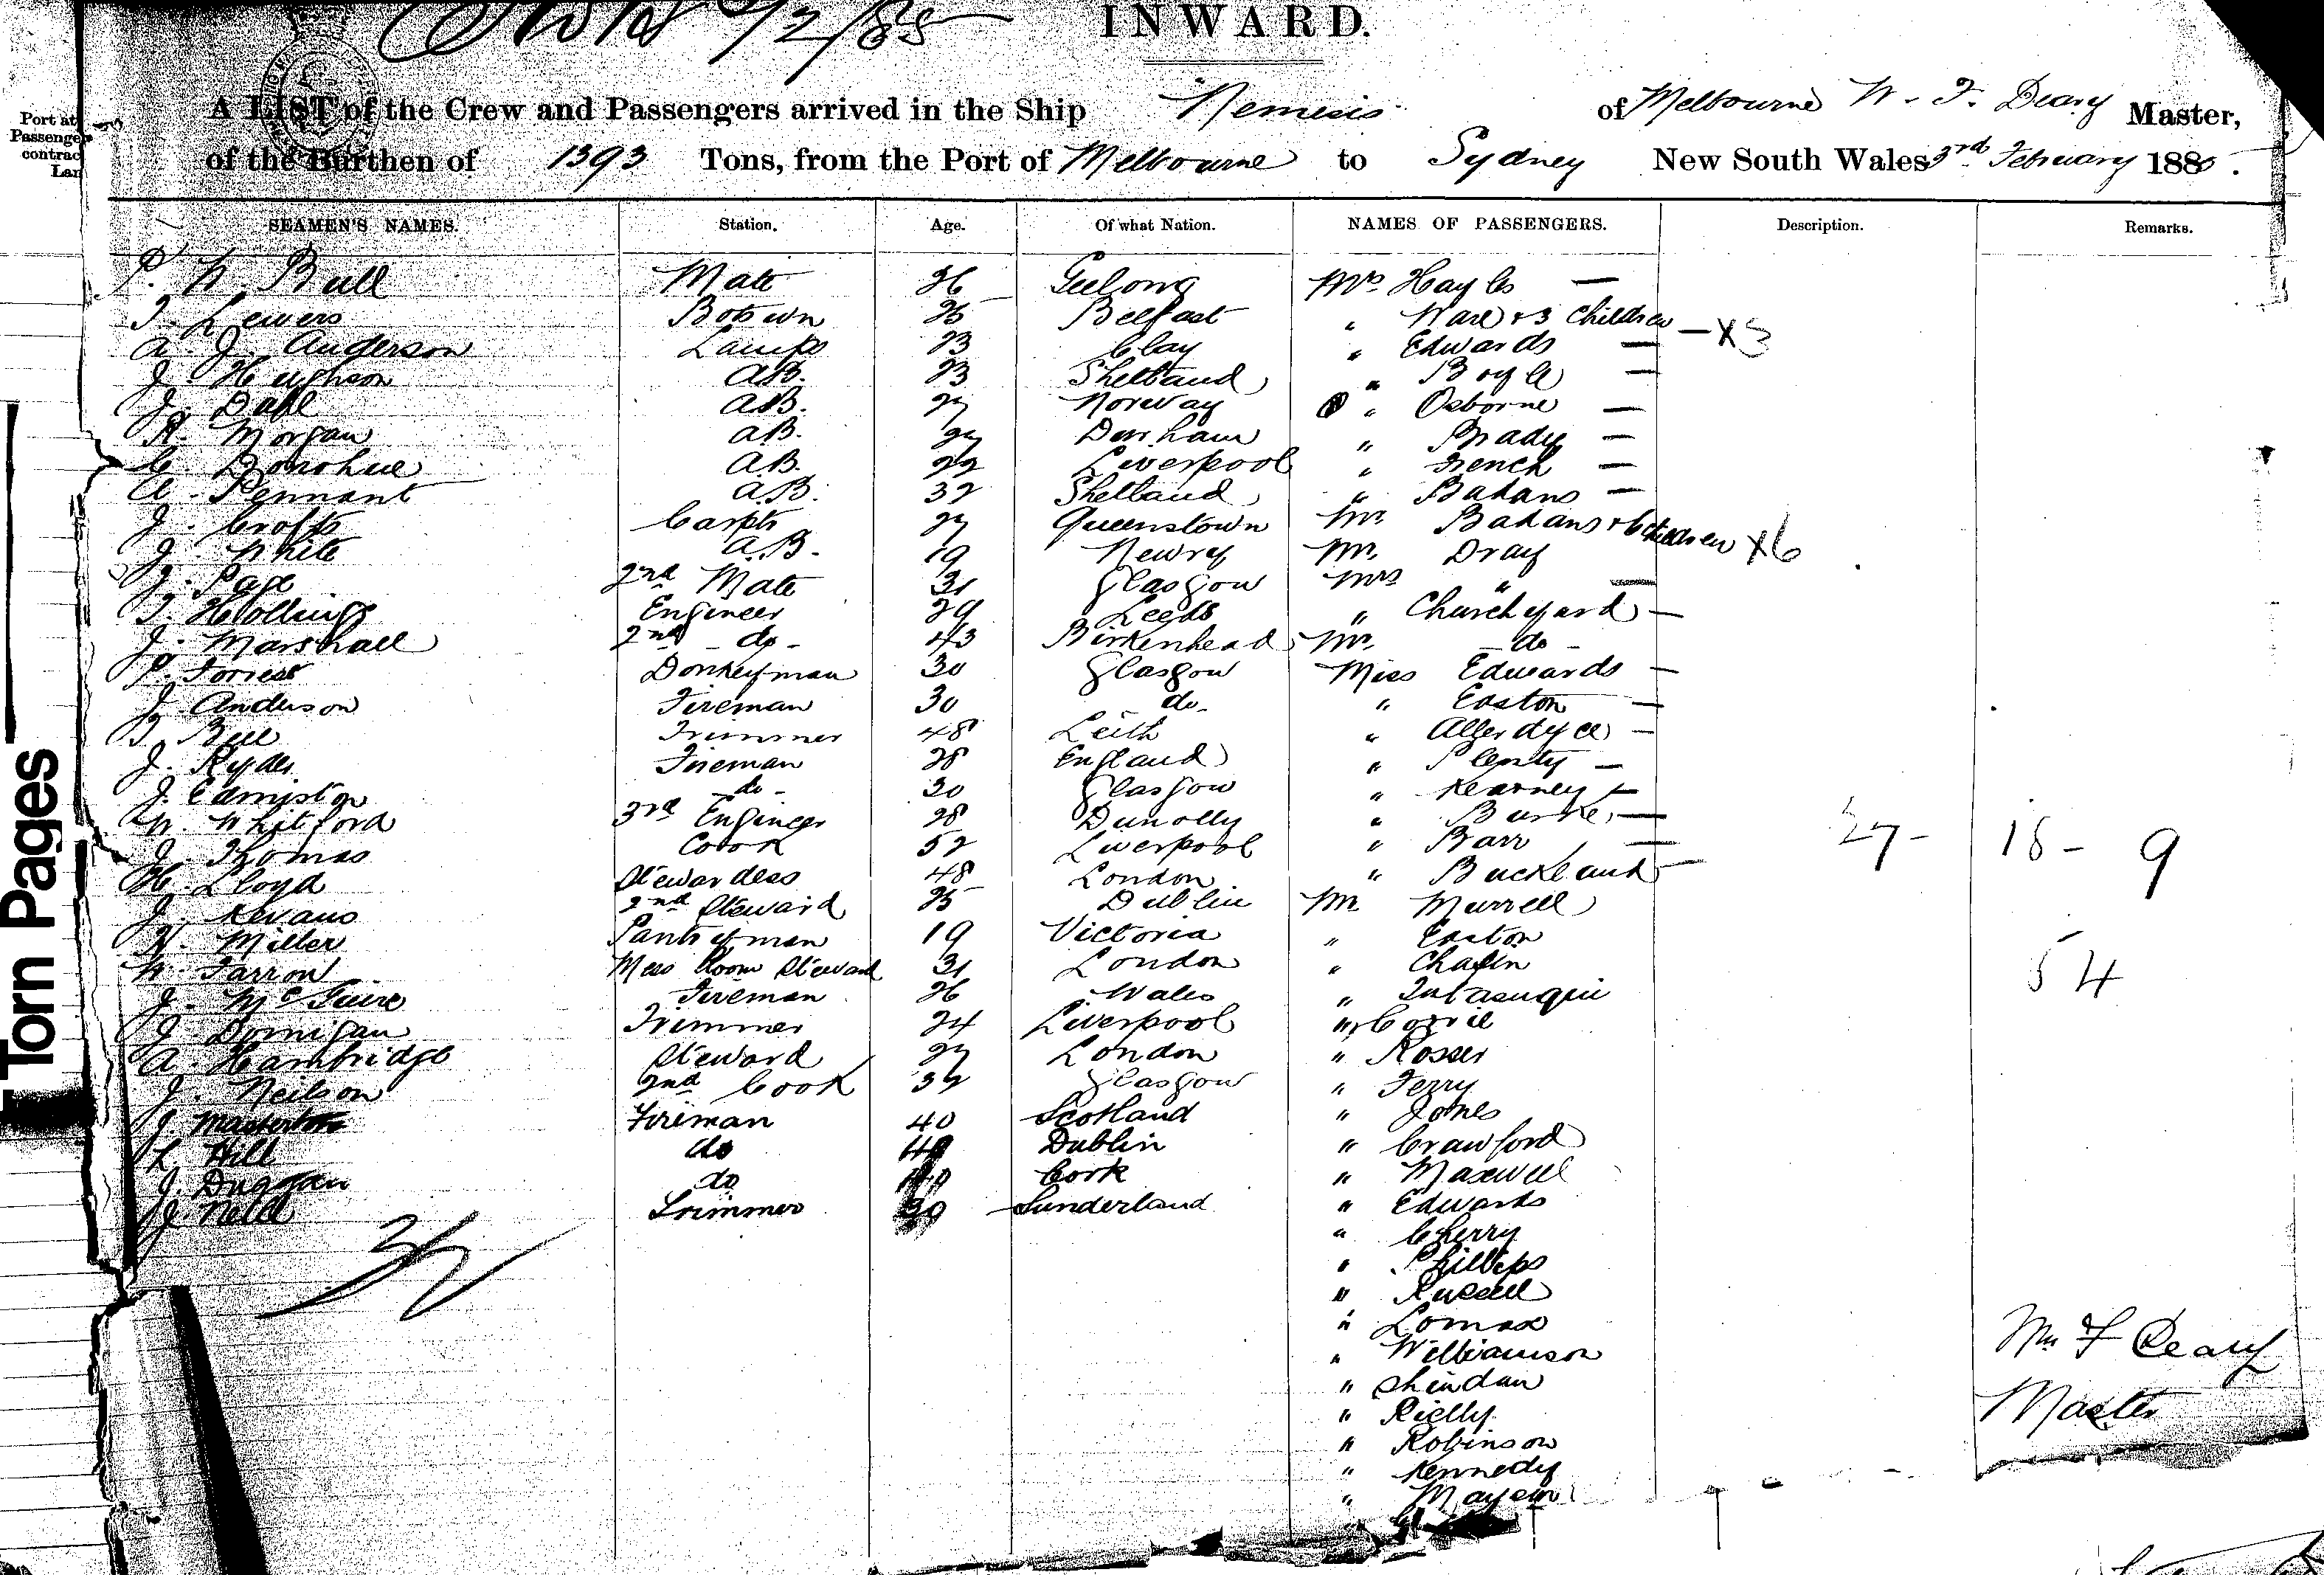 2/2/85
INWARD.
Port at
Passenge
contrac
Lan
A LIST of the Crew and Passengers arrived in the Ship Nemesis of Melbourne W. F. Deary Master,
of the Burthen of 1393 Tons, from the Port of Melbourne to Sydney New South Wales 3rd February 1885.
SEAMEN'S NAMES. Station. Age. Of what Nation. NAMES OF PASSENGERS. Description. Remarks.
P. W. Bull Mate 36 Geelong Mrs Hayles —
T. Lewers Botswn 25 Belfast " Ware + 3 Children — X3
A. J. Anderson Lamps 23 Clay " Edwards —
J. Hughson A.B. 23 Shetland " Boyle —
J. Dahl A.B. 27 Norway " Osborne —
R. Morgan A.B. 27 Durham " Brady —
C. Donohue A.B. 22 Liverpool " French —
A. Pennant A.B. 32 Shetland " Badans —
J. Crofts Carptr 27 Queenstown Mr. Badans + 6 Children X6
J. White A.B. 19 Newry Mr. Dray
J. Page 2nd Mate 31 Glasgow Mrs " —
T. Hollings Engineer 29 Leeds " Churchyard —
J. Marshall 2nd - do - 43 Birkenhead Mr. - do -
P. Forrest Donkeyman 30 Glasgow Miss Edwards —
J. Anderson Fireman 30 do. " Easton —
T. Bell Trimmer 48 Leith " Allerdyce —
J. Ryder Fireman 28 England " Plenty —
J. Edmiston - do - 30 Glasgow " Kearney —
W. Whitford 3rd Engineer 28 Dunolly " Burke —
J. Thomas Coook 52 Liverpool " Barr — 27- 18- 9
H. Lloyd Stewardess 48 London " Buckland —
J. Kevans 2nd Steward 25 Dublin Mr Murrell
H. Miller Pantryman 19 Victoria " Easton
W. Farrow Mess Room Steward 31 London " Chafin 54
J. McGuire Fireman 26 Wales "
J. Dornigan Trimmer 24 Liverpool " Corrie
A. Hambridge Steward 27 London " Rosser
J. Neilson 2nd Cook 32 Glasgow " Terry
J. Masterton Fireman 40 Scotland " Jones
L. Hill do 40 Dublin " Crawford
J. Duggan do 40 Cork " Maxwell
J. Neld Trimmer 30 Sunderland " Edwards
" Cherry
32
" Phillips
" Russell
" Lomax
Wm F Deary
" Williamson
" Sheridan
Master
" Rielly
" Robinson
" Kennedy
" Mayem
Torn Pages